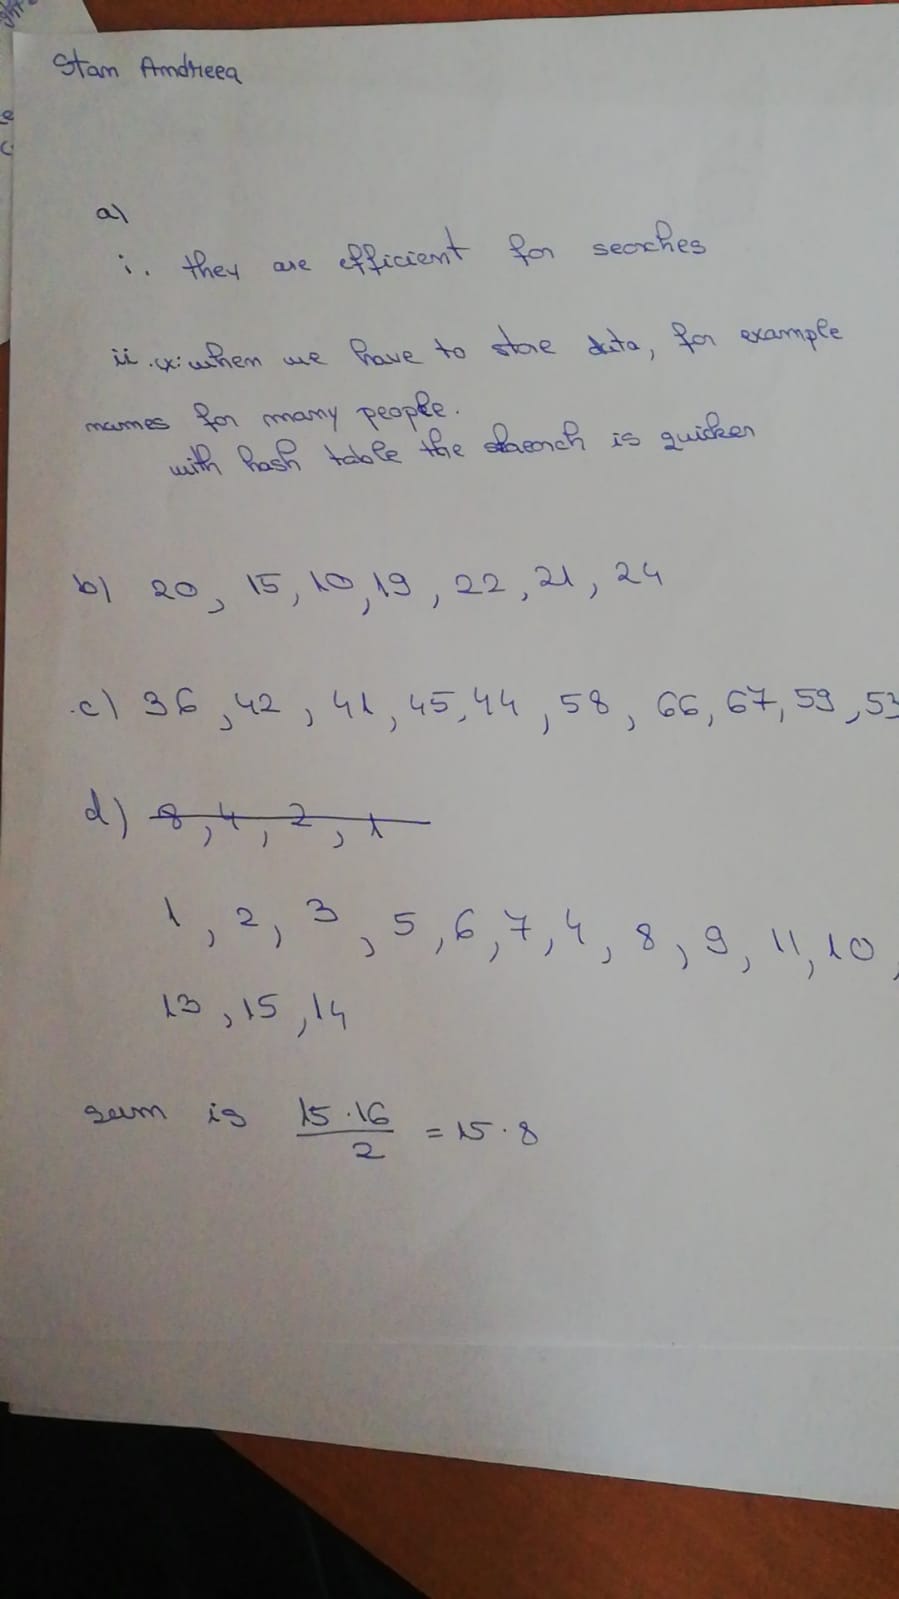 Stan Andreea
a)
i. they are efficient for searches
ii. when we have to store data, for example
names for many people.
with hash table the search is quicker
b) 20, 15, 10, 19, 22, 21, 24
c) 36, 42, 41, 45, 44, 58, 66, 67, 59, 53
d) 8, 4, 2, 1
1, 2, 3, 5, 6, 7, 4, 8, 9, 11, 10,
13, 15, 14
sum is 15·16/2 = 15·8